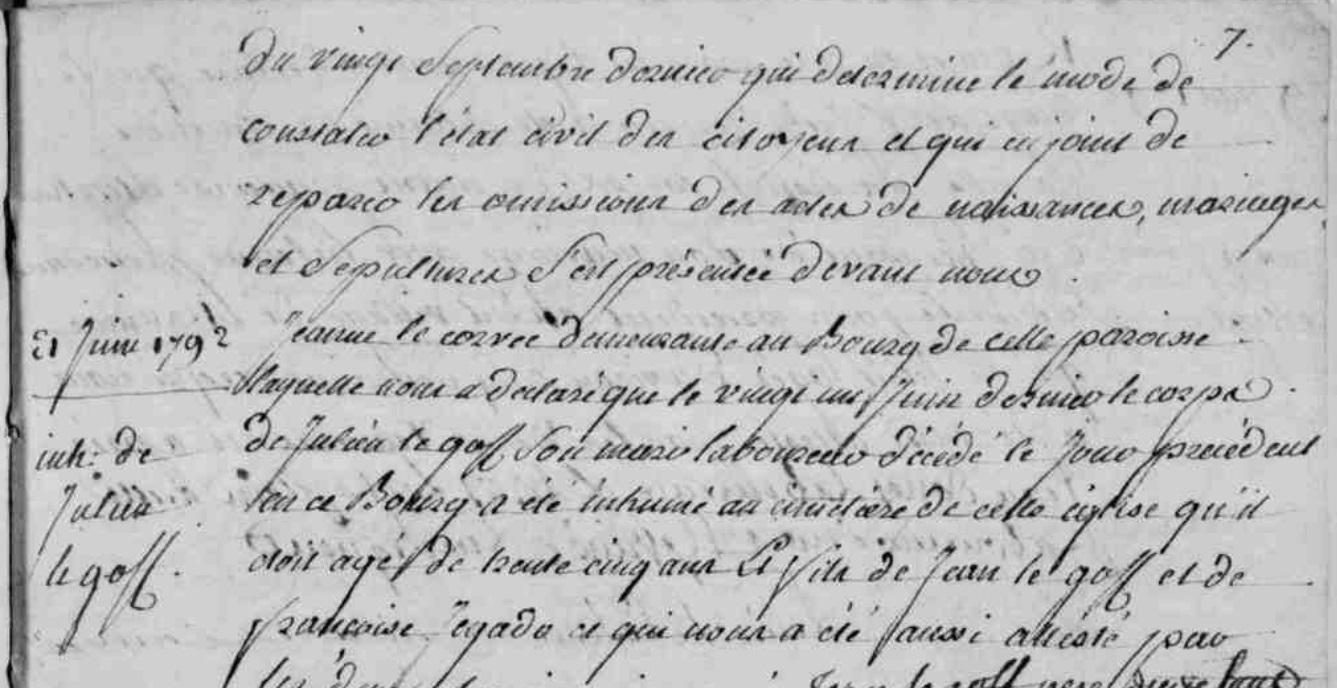 7.
du vingt Septembre dernier qui determine le mode de
constater l'état civil des citoyens et qui enjoint de
reparer les omissions des actes de naissances, mariages
et Sepultures S'est présentée devant nous.
21 Juin 1792
Jeanne le corvec demeurante au Bourg de cette paroisse
laquelle nous a declaré que le vingt un Juin dernier le corps
inh: de
Julien
le goff.
de Julien le goff Son mari laboureur décédé le Jour precédent
en ce Bourg a été inhumé au cimetiere de cette église qu'il
étoit agé de trente cinq ans et fils de Jean le goff et de
françoise Jegado ce qui nous a été aussi attesté par
Jean le goff pere